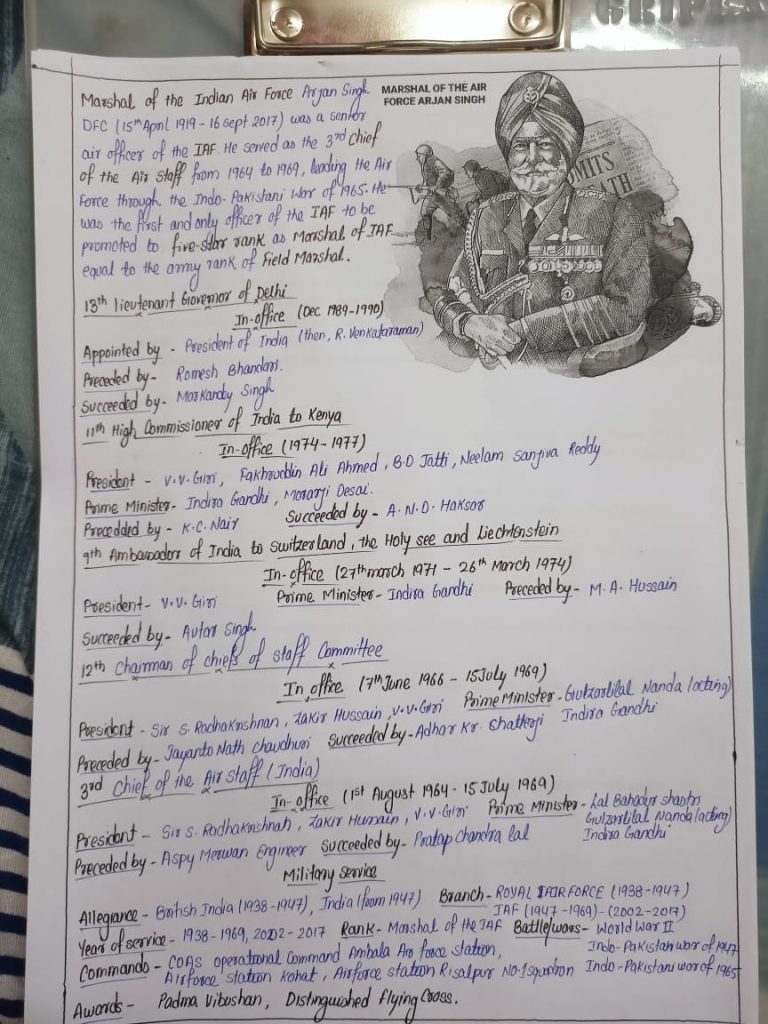 GRIPE
Marshal of the Indian Air Force Arjan Singh
DFC (15th April 1919 - 16 Sept 2017) was a senior
air officer of the IAF. He served as the 3rd Chief
of the Air Staff from 1964 to 1969, leading the Air
Force through the Indo-Pakistani War of 1965. He
was the first and only officer of the IAF to be
promoted to five-star rank as Marshal of IAF
equal to the army rank of Field Marshal.
MARSHAL OF THE AIR
FORCE ARJAN SINGH
MITS
ATH
13th lieutenant Governor of Delhi
In-office (Dec 1989-1990)
Appointed by - President of India (then, R. Venkataraman)
Preceded by - Romesh Bhandari.
Succeeded by - Markandy Singh
11th High Commissioner of India to Kenya
In-office (1974-1977)
President - V.V. Giri, Fakhruddin Ali Ahmed, B.D Jatti, Neelam Sanjiva Reddy
Prime Minister - Indira Gandhi, Morarji Desai.
Precedded by - K.C. Nair Succeeded by - A.N.D. Haksar
9th Ambassador of India to Switzerland, the Holy see and Liechtenstein
In-office (27th march 1971 - 26th March 1974)
President - V.V. Giri Prime Minister - Indira Gandhi Preceded by - M.A. Hussain
Succeeded by - Avtar Singh
12th Chairman of chiefs of staff Committee
In office (7th June 1966 - 15 July 1969)
President - Sir S. Radhakrishnan, Zakir Hussain, V.V. Giri Prime Minister - Gulzarilal Nanda (acting)
Indira Gandhi
Preceded by - Jayanto Nath Chaudhuri Succeeded by - Adhar Kr. Chatterji
3rd Chief of the Air staff (India)
In-office (1st August 1964 - 15 July 1969)
President - Sir S. Radhakrishnan, Zakir Hussain, V.V. Giri Prime Minister - Lal Bahadur shastri
Gulzarilal Nanda (acting)
Indira Gandhi
Preceded by - Aspy Merwan Engineer Succeeded by - Pratap Chandra lal
Military service
Allegiance - British India (1938-1947), India (from 1947) Branch - ROYAL AIR FORCE (1938-1947)
IAF (1947-1969) - (2002-2017)
Year of service - 1938-1969, 2002-2017 Rank - Marshal of the IAF Battle/wars - World War II
Indo-Pakistani war of 1947
Commands - COAS operational Command Ambala Air force station,
Airforce station Kohat, Airforce station Risalpur No.1 squadron Indo-Pakistani war of 1965
Awards - Padma Vibushan, Distinguished Flying Cross.